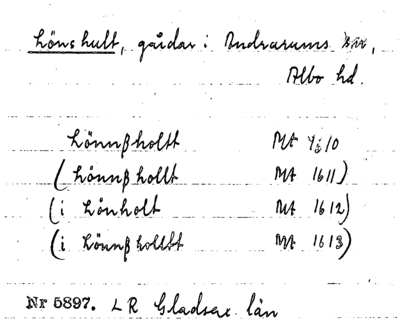 Lönshult, gårdar i Andrarums sn,
Albo hd.
Lönnßholtt Mt 1610
(Lönnßholtt Mt 1611)
(i Lönholt Mt 1612)
(i Lönnßholttt Mt 1613)
Nr 5897. LR Gladsax län